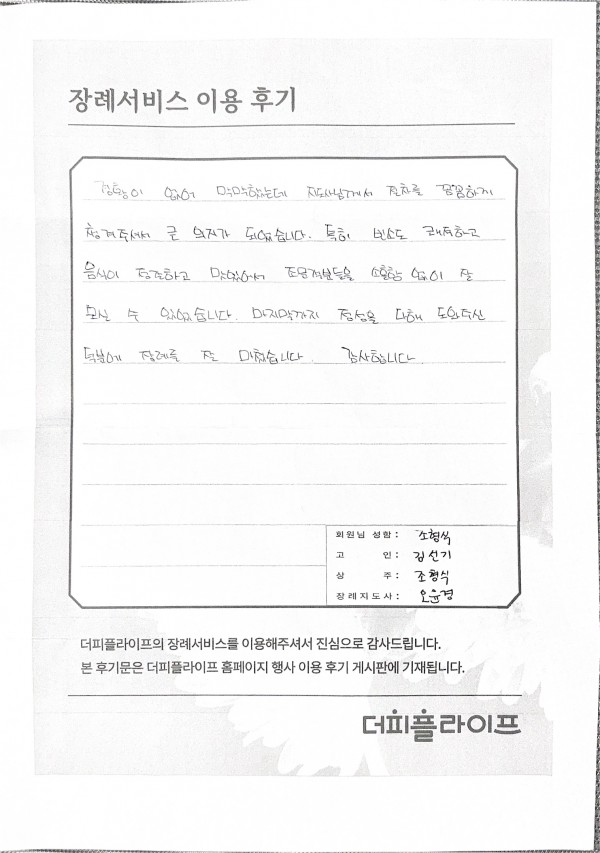 장례서비스 이용 후기
경황이 없어 막막했는데 지도사님께서 절차를 꼼꼼하게
챙겨주셔서 큰 의지가 되었습니다. 특히 빈소도 쾌적하고
음식이 정갈하고 맛있어서 조문객분들을 소홀함 없이 잘
모실 수 있었습니다. 마지막까지 정성을 다해 도와주신
덕분에 장례를 잘 마쳤습니다. 감사합니다
회원님 성함 : 조형식
고 인 : 김선기
상 주 : 조형식
장례지도사 : 오윤경
더피플라이프의 장례서비스를 이용해주셔서 진심으로 감사드립니다.
본 후기문은 더피플라이프 홈페이지 행사 이용 후기 게시판에 기재됩니다.
더피플라이프